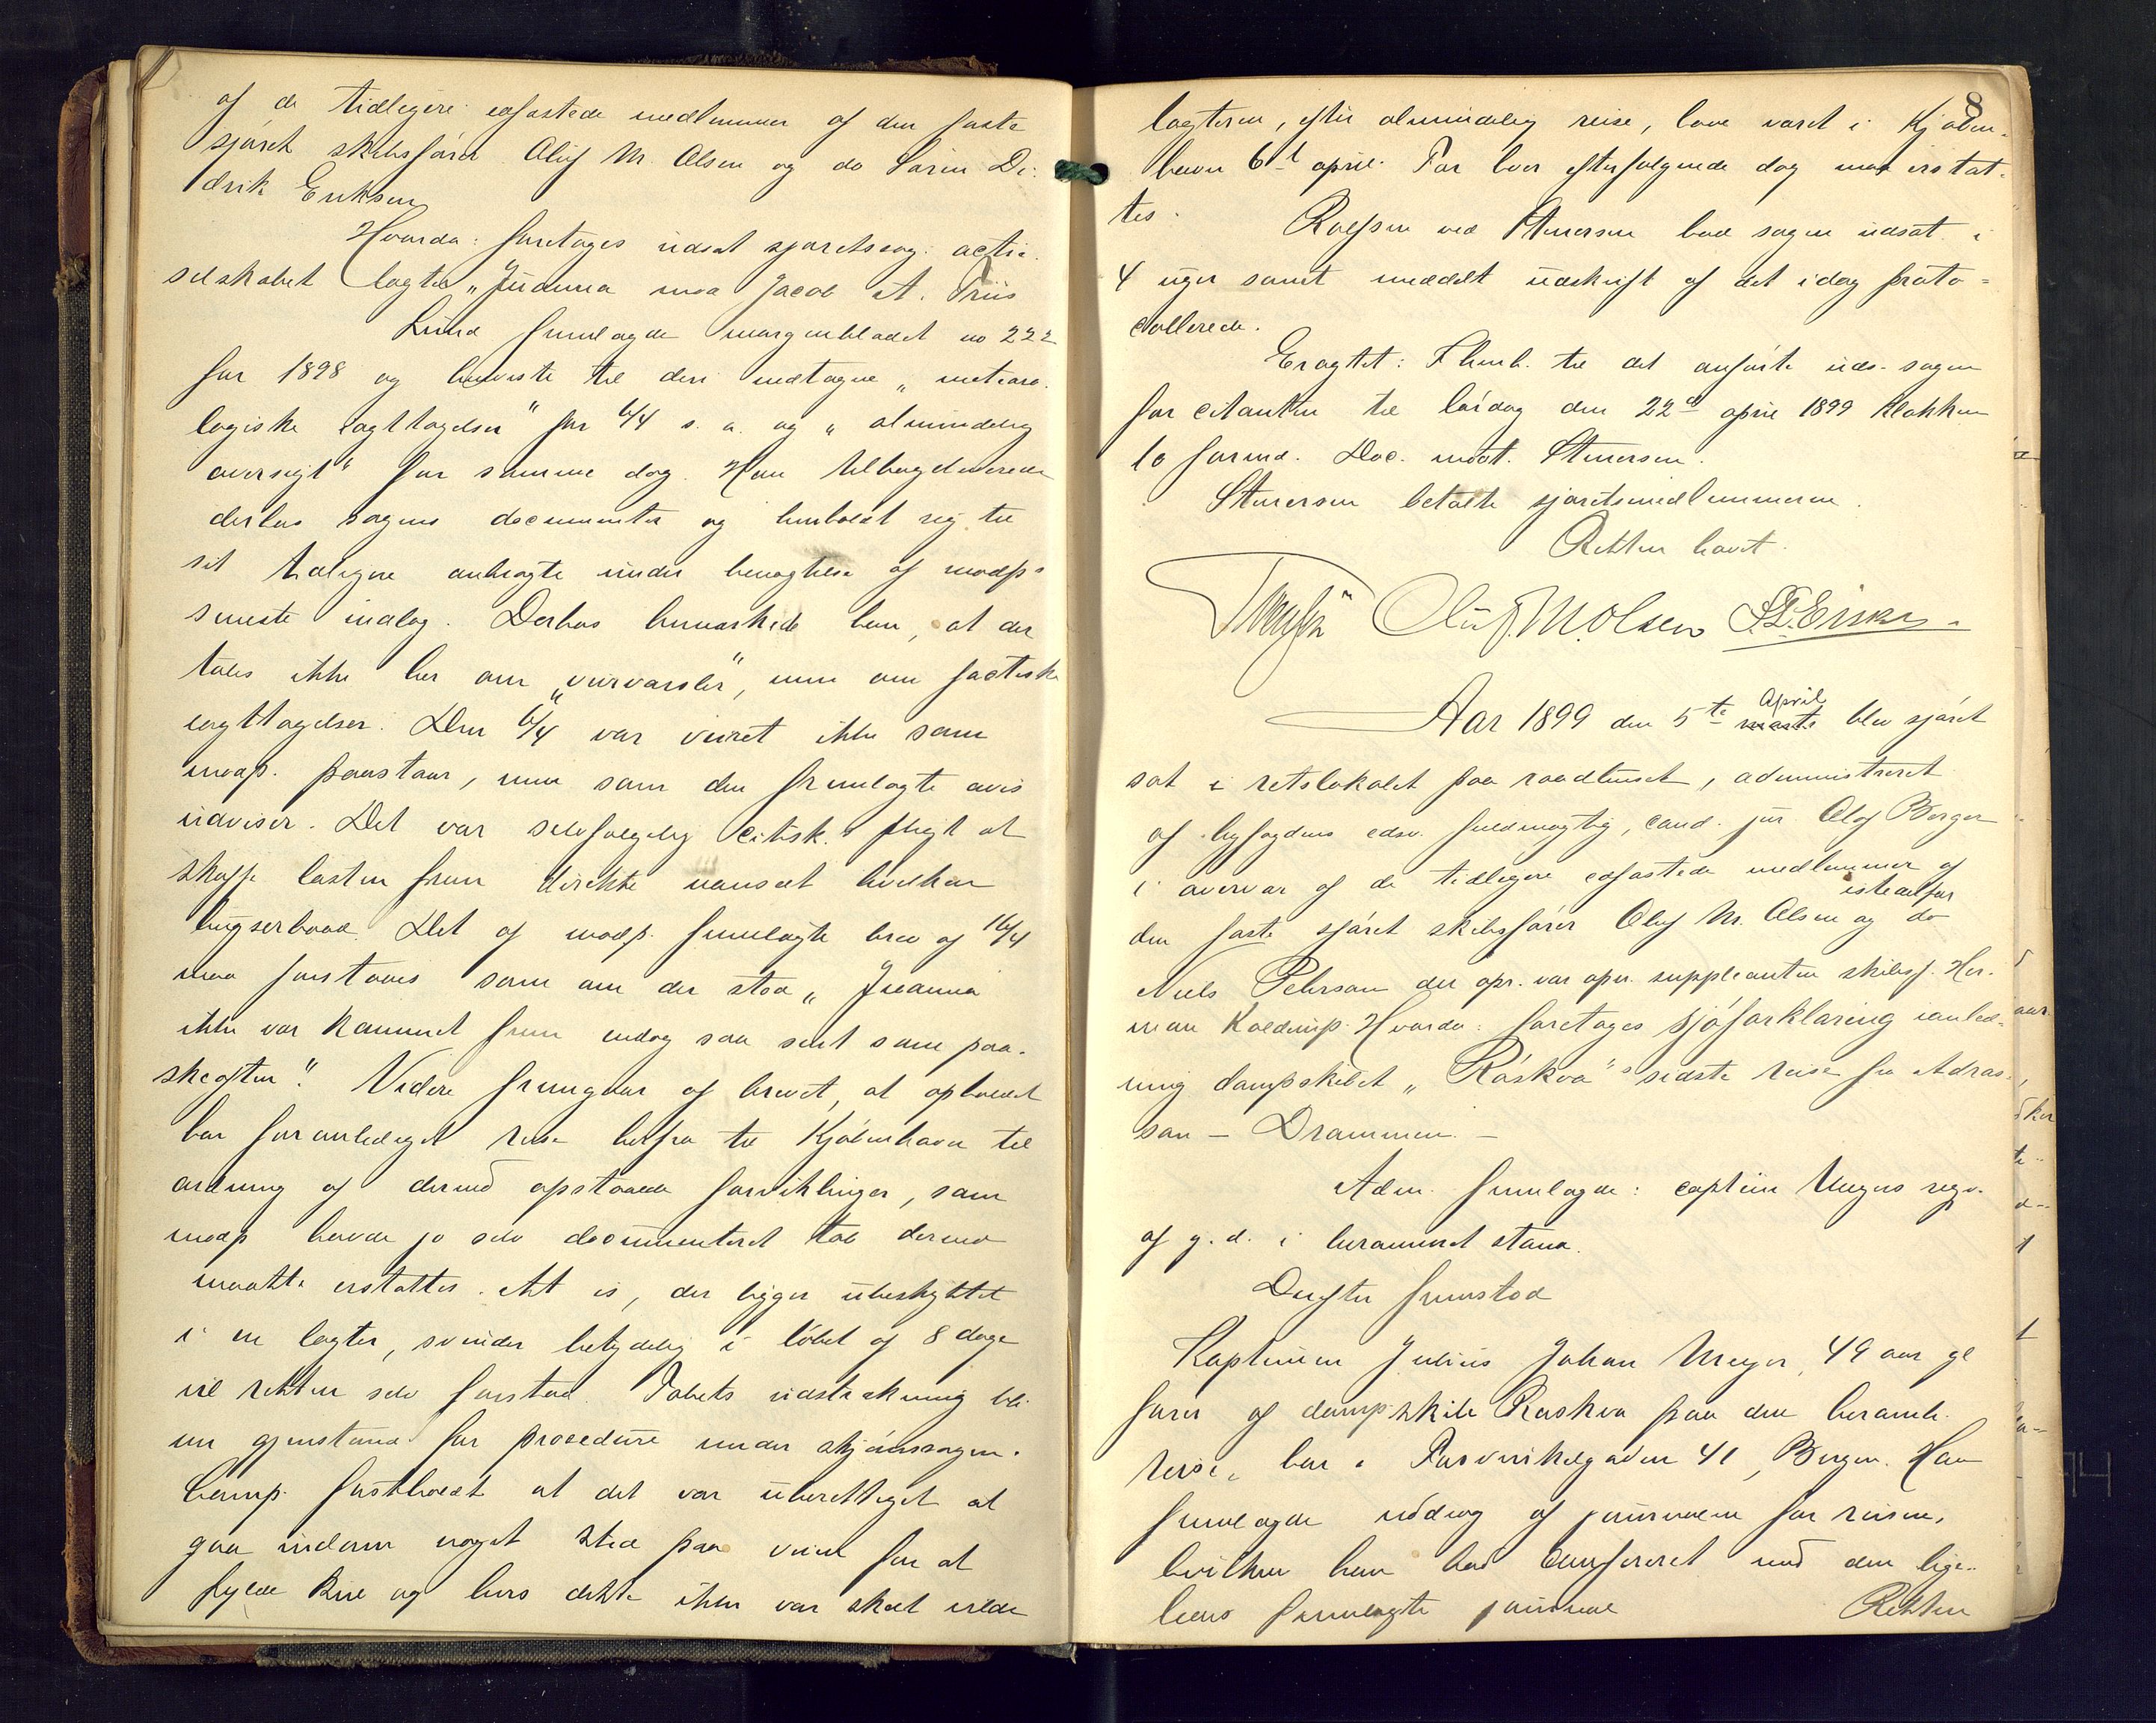 af de tidligere edfæstede medlemmer af den faste
sjøret skibsfører Oluf M. Olsen og do Sørin Di-
drik Eriksen
Hvorda: foretoges udsat sjøretssag: actie-
selskabet lægter "Juanna mod Jacob A. Friis
Lund fremlagde morgenbladet no 222
for 1898 og henviste til deri indtagne "meteoro-
logiske iagttagelser" for 6/4 s. a. og "almindelig
oversigt" for samme dag. Han tilbageleverede
derhos sagens documenter og henholdt sig til
sit tidligere anbragte under benægtelse af modp's
seneste indlæg. Derhos bemærkede han, at der
tales ikke her om "veirvarsler", men om factiske
iagttagelser. Den 6/4 var veiret ikke som
modp. paastaar, men som den fremlagte avis
udviser. Det var selvfølgelig citisk.s pligt at
skaffe lasten frem direkte uanset hvilken
bugserbaad. Det af modp. fremlagte brev af 16/4
maa forstaaes som om der stod "Juanna
ikke var kommet frem endog saa sent som paa-
skeaften". Videre fremgaar af brevet, at opholdet
har foranlediget reise herfra til Kjøbenhavn til
ordning af derved opstaaede forviklinger, som
modp havde jo selv documenteret tab derved
maatte erstattes. At is, der ligger ubeskyttet
i en lægter, svinder betydelig i løbet af 8 dage
vil retten selv forstaa. Tabets udstrækning bli-
ver gjenstand for procedure under skjønssagen.
Comp. fastholdt at det var uberettiget at
gaa indom noget sted paa veien for at
fylde kul og hvis dette ikke var skeet vilde
8
lægteren, efter almindelig reise, have været i Kjøben-
havn 6t april. For hver efterfølgende dag maa erstat-
tes.
Rolfsen ved Stenersen bad sagen udsat i
4 uger samt meddelt udskrift af det idag proto-
collerede.
Eragtet: I henh. til det anførte uds. sagen
for citanten til lørdag den 22de april 1899 klokken
10 formd. Doc. modt. Stenersen.
Stenersen betalte sjøretsmedlemmerne.
Retten hævet.
Oluf. M. Olsen S. D. Eriksen
Aar 1899 den 5te marts April blev sjøret
sat i retslokalet paa raadhuset, administreret
af byfogdens edsv. fuldmægtig, cand. jur. Olaf Berger
i overvær af de tidligere edfæstede medlemmer af
den faste sjøret skibsfører Oluf M. Olsen og do istedetfor
Niels Peterson der opr. var opn. suppleanten skibsf. Her-
man Koldrup. Hvorda: foretoges sjøforklaring ianled-
ning dampskibet "Røskva"s sidste reise fra Adros-
san – Drammen. –
Adm. fremlagde: captein Meyers reqv.
af g. d. i berammet stand.
Derefter fremstod
Kapteinen Julius Johan Meyer, 49 aar gl
fører af dampskib Røskva paa den beramh.
reise, bor i Torvenikelgaden 41, Bergen. Han
fremlagde uddrag af journalen for reisen,
hvilken han bad confereret med den lige-
ledes fremlagte journal Retten